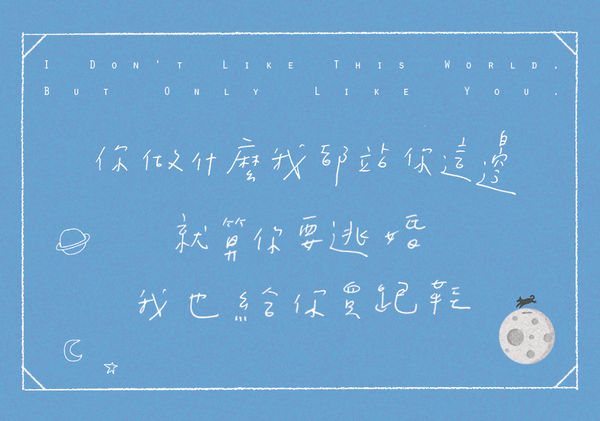 I Don't Like This World,
But Only Like You.
你做什麼我都站你這邊
就算你要逃婚
我也給你買跑鞋